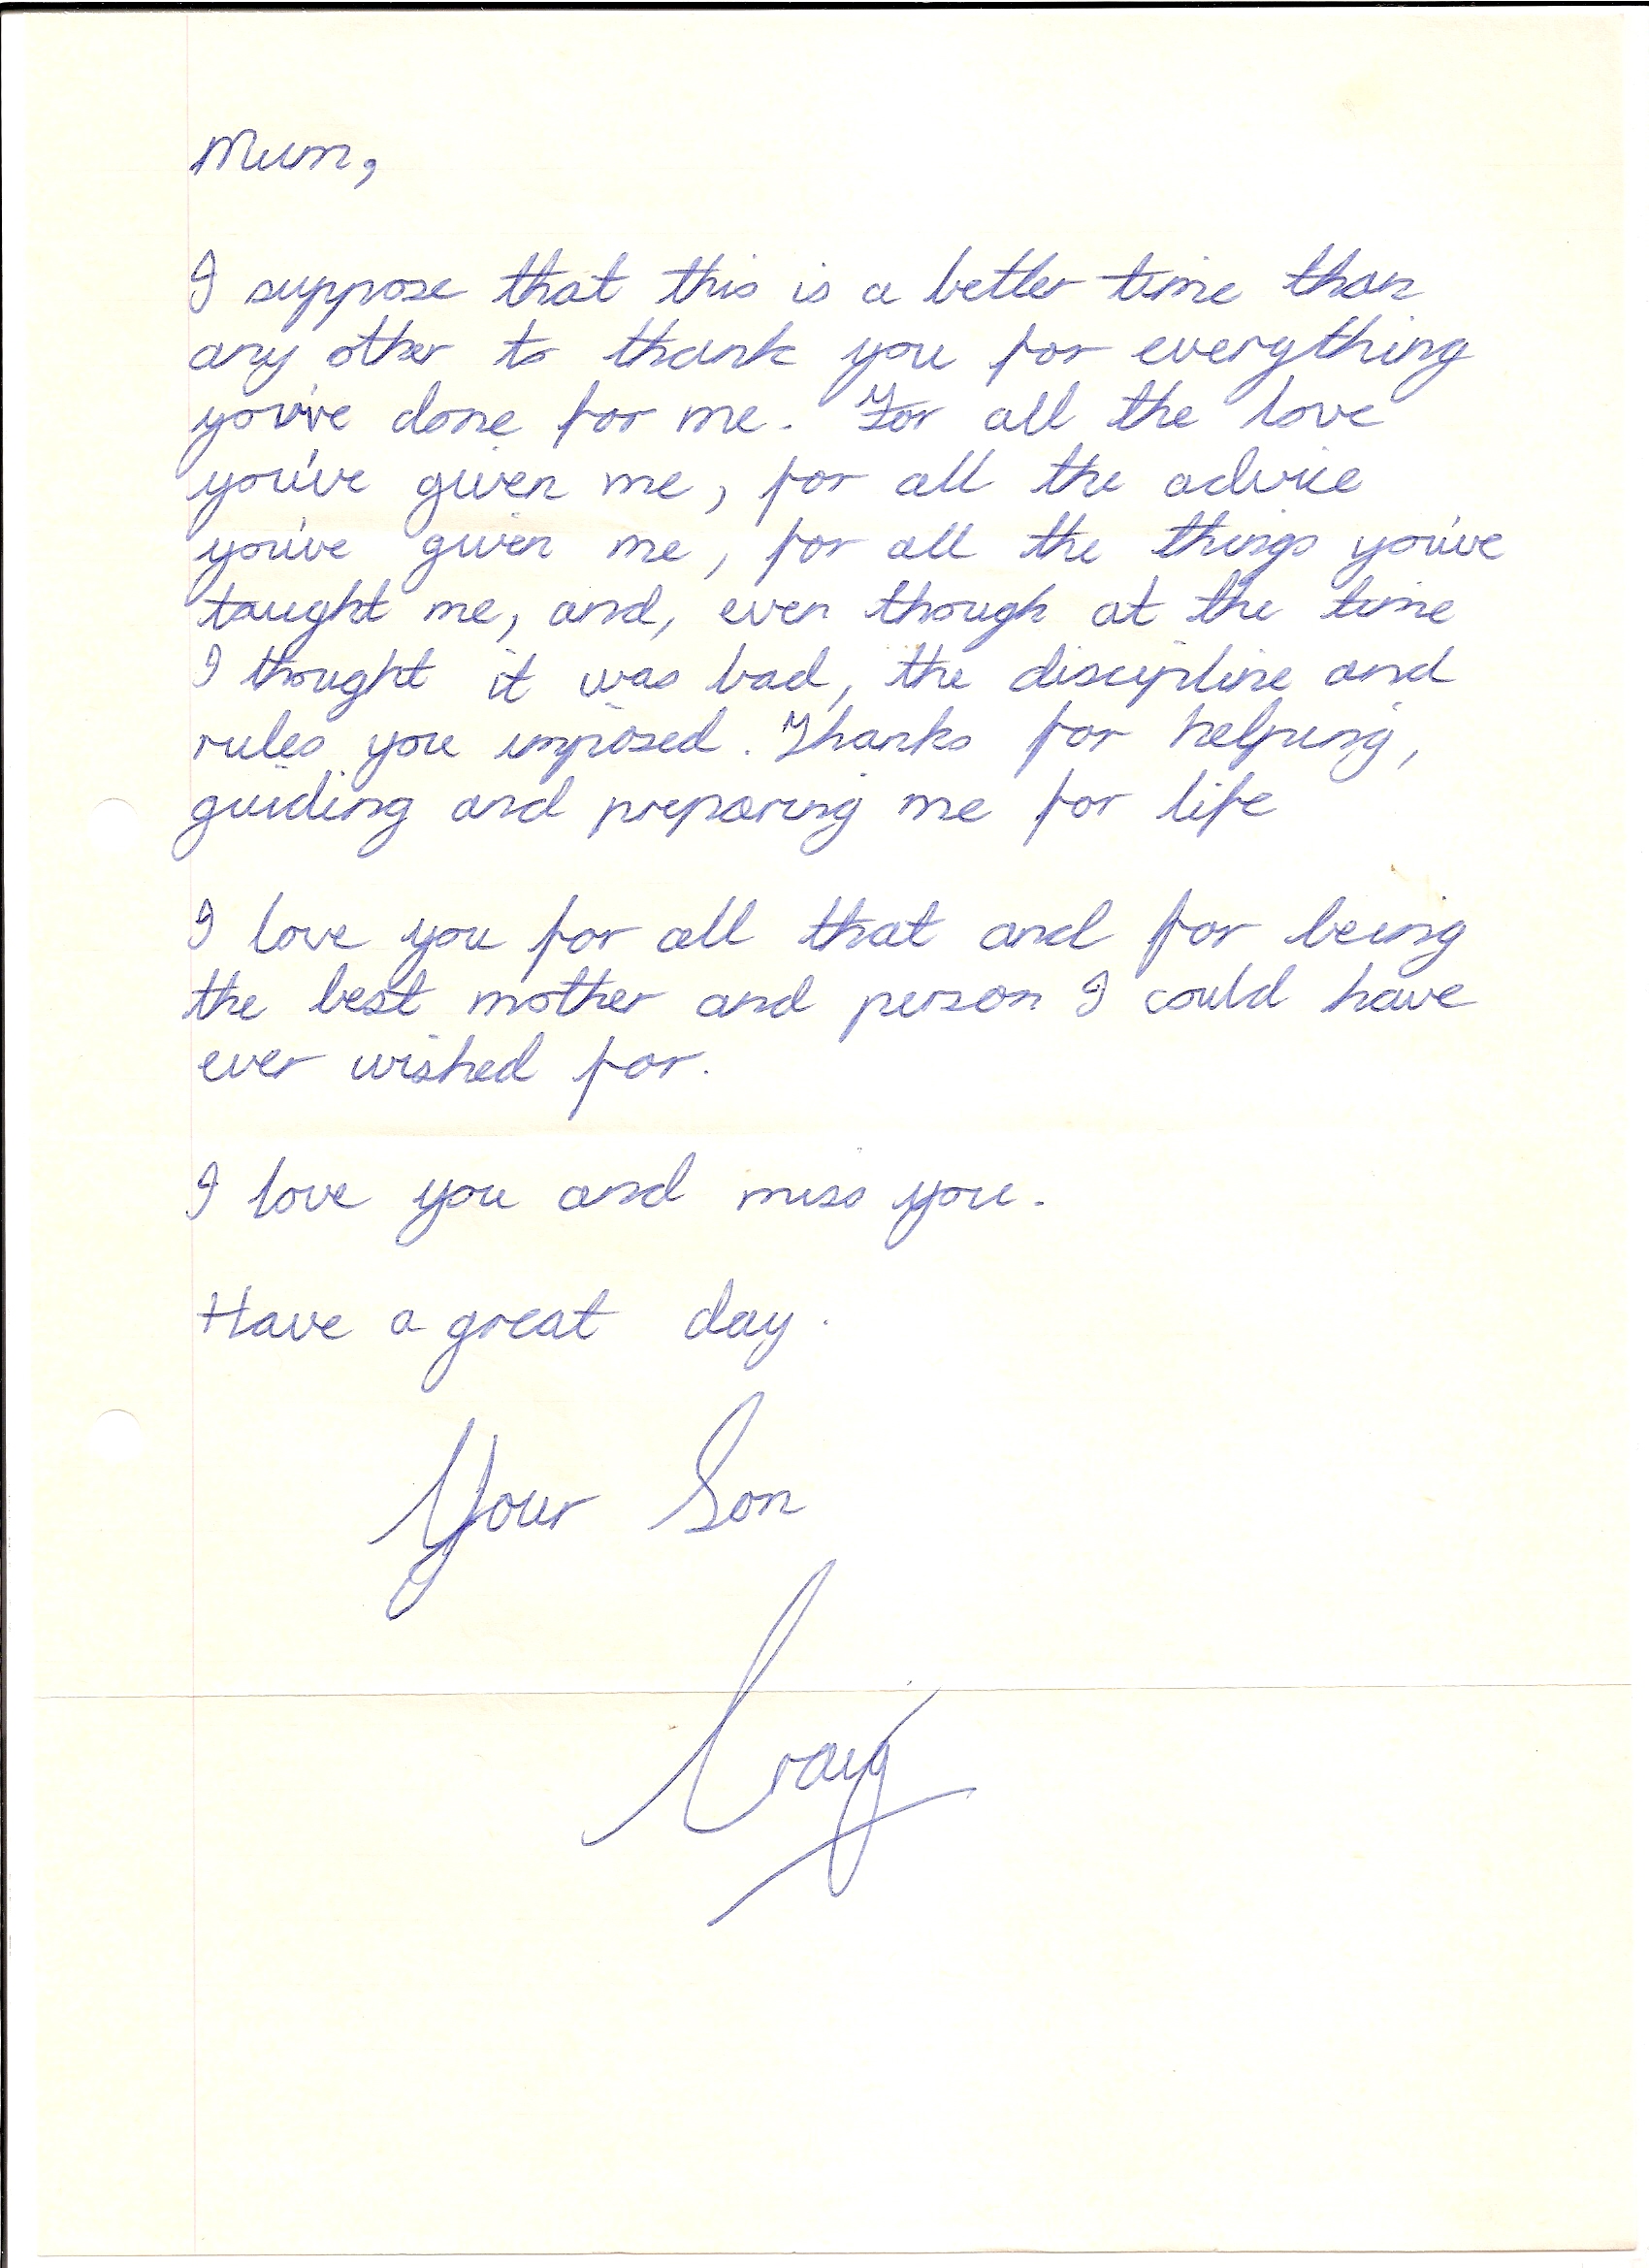 Mum,
I suppose that this is a better time than
any other to thank you for everything
you've done for me. For all the love
you've given me, for all the advice
you've given me, for all the things you've
taught me, and, even though at the time
I thought it was bad, the discipline and
rules you imposed. Thanks for helping,
guiding and preparing me for life
I love you for all that and for being
the best mother and person I could have
ever wished for.
I love you and miss you.
Have a great day.
Your Son
Craig